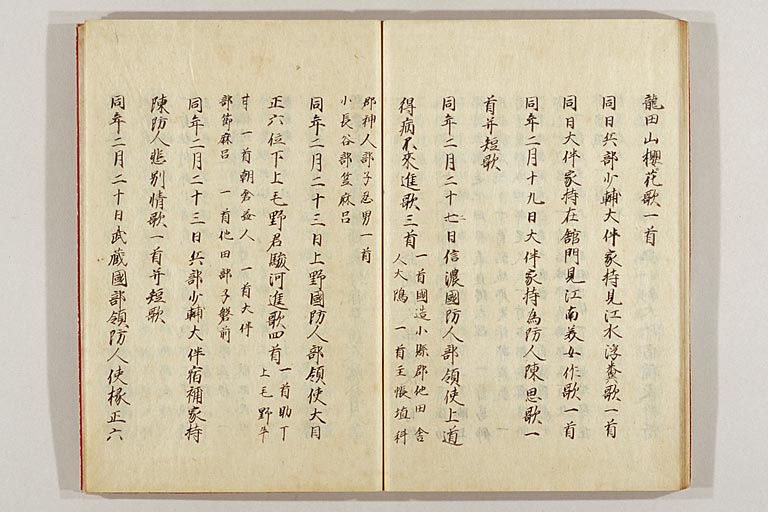 龍田山櫻花歌一首
同日兵部少輔大伴家持見江水浮糞歌一首
同日大伴家持在舘門見江南美女作歌一首
同年二月十九日大伴家持為防人陳思歌一
首并短歌
同年二月二十二日信濃國防人部領使上道
得病不來進歌三首
一首國造小縣郡他田舎
人大隝 一首主帳埴科
郡神人部子忍男一首
小長谷部笠麻呂
同年二月二十三日上野國防人部領使大目
正六位下上毛野君駿河進歌四首
一首助丁
上毛野牛
甘 一首朝倉益人 一首大伴
部節麻呂 一首他田部子磐前
同年二月二十三日兵部少輔大伴宿祢家持
陳防人悲別情歌一首并短歌
同年二月二十日武蔵國部領防人使掾正六